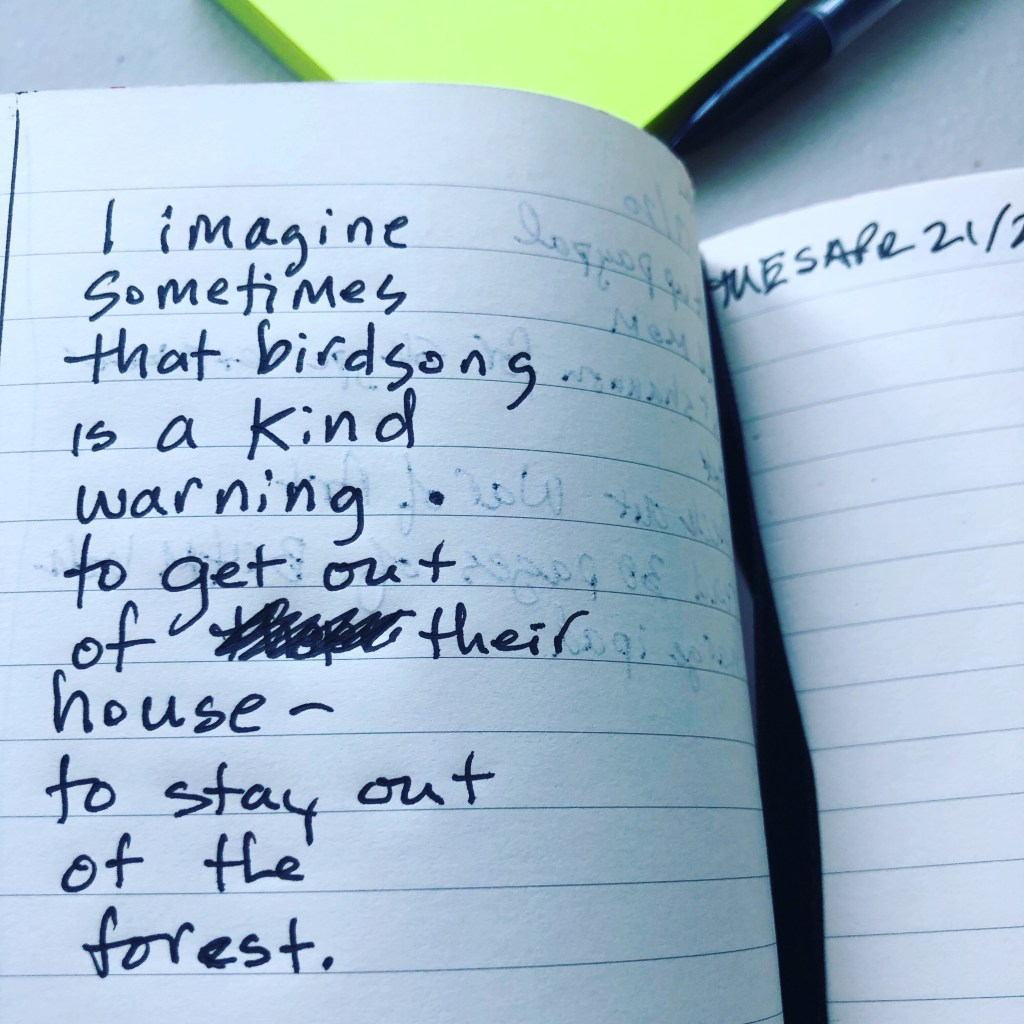 I imagine
sometimes
that birdsong
is a kind
warning.
to get out
of their
house –
to stay out
of the
forest.
TUES APR 21/2